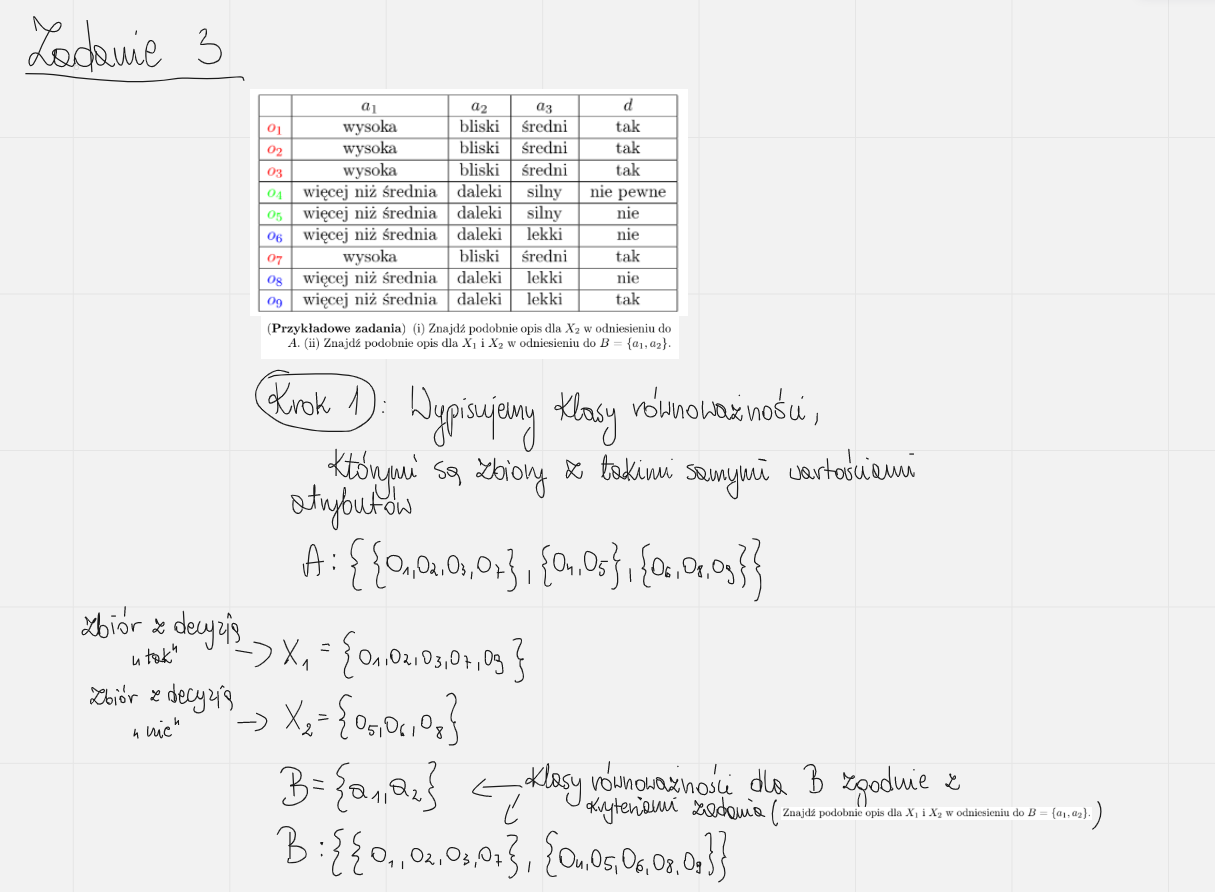 Zadanie 3
a₁ a₂ a₃ d
o₁ wysoka bliski średni tak
o₂ wysoka bliski średni tak
o₃ wysoka bliski średni tak
o₄ więcej niż średnia daleki silny nie pewne
o₅ więcej niż średnia daleki silny nie
o₆ więcej niż średnia daleki lekki nie
o₇ wysoka bliski średni tak
o₈ więcej niż średnia daleki lekki nie
o₉ więcej niż średnia daleki lekki tak
(Przykładowe zadania) (i) Znajdź podobnie opis dla X₂ w odniesieniu do
A. (ii) Znajdź podobnie opis dla X₁ i X₂ w odniesieniu do B = {a₁, a₂}.
Krok 1: Wypisujemy klasy równoważności,
którymi są zbiory z takimi samymi wartościami
atrybutów
A: {{O₁,O₂,O₃,O₇}, {O₄,O₅}, {O₆,O₈,O₉}}
Zbiór z decyzją
„tak" → X₁ = {O₁,O₂,O₃,O₇,O₉}
Zbiór z decyzją
„nie" → X₂ = {O₅,O₆,O₈}
B = {a₁,a₂} ← Klasy równoważności dla B zgodnie z
kryteriami zadania (Znajdź podobnie opis dla X₁ i X₂ w odniesieniu do B = {a₁, a₂}.)
B : {{O₁,O₂,O₃,O₇}, {O₄,O₅,O₆,O₈,O₉}}